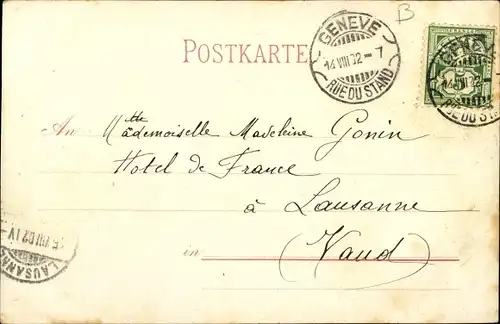 B
GENEVE
14.VIII 02-7
RUE DU STAND
GENEVE
RUE DU STA
POSTKARTE
An Mademoiselle Madeleine Gonin
Hotel de France
à Lausanne
in (Vaud)
15.VIII 02 IV
LAUSANNE